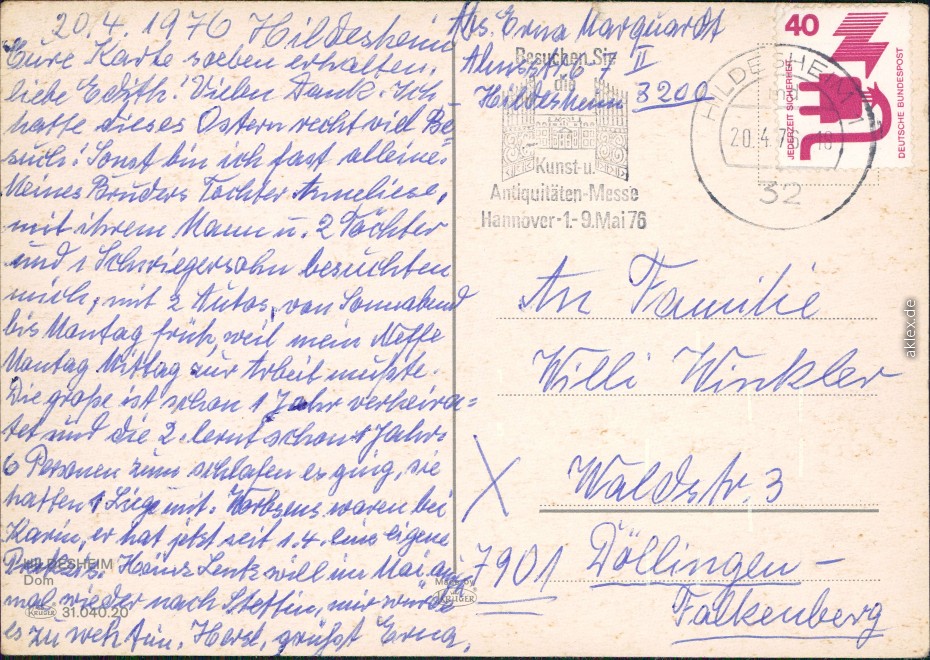 20.4.1976 Hildesheim
Eure Karte soeben erhalten,
liebe Edith! Vielen Dank. Ich
hatte dieses Ostern recht viel Be-
such. Sonst bin ich fast alleine.
Meines Bruders Tochter Anneliese,
mit ihrem Mann u. 2 Töchter
und 1 Schwiegersohn besuchten
mich, mit 2 Autos, von Sonnabend
bis Montag früh, weil mein Neffe
Montag Mittag zur Arbeit mußte.
Die große ist schon 1 Jahr verheira=
tet und die 2. lernt schon 1 Jahr.
6 Personen zum schlafen es ging, sie
hatten 1 Liege mit. waren bei
Karin, er hat jetzt seit 1.4. eine eigene
Praxis. Heinz Lenk will im Mai
mal wieder nach Stettin, mir würde
es zu weh tun. Herzl. grüßt Erna.
HILDESHEIM
Dom
KRÜGER 31.040.20
Made by
KRÜGER
Abs. Erna Marquardt
7 II
Hildesheim 3200
Besuchen Sie
die
Kunst-u.
Antiquitäten-Messe
Hannover-1.-9.Mai 76
HILDESHEIM 1
20.4.76
18
32
40
JEDERZEIT SICHERHEIT
DEUTSCHE BUNDESPOST
An Familie
Willi Winkler
X Waldstr. 3
7901 Döllingen -
Falkenberg
aklex.de